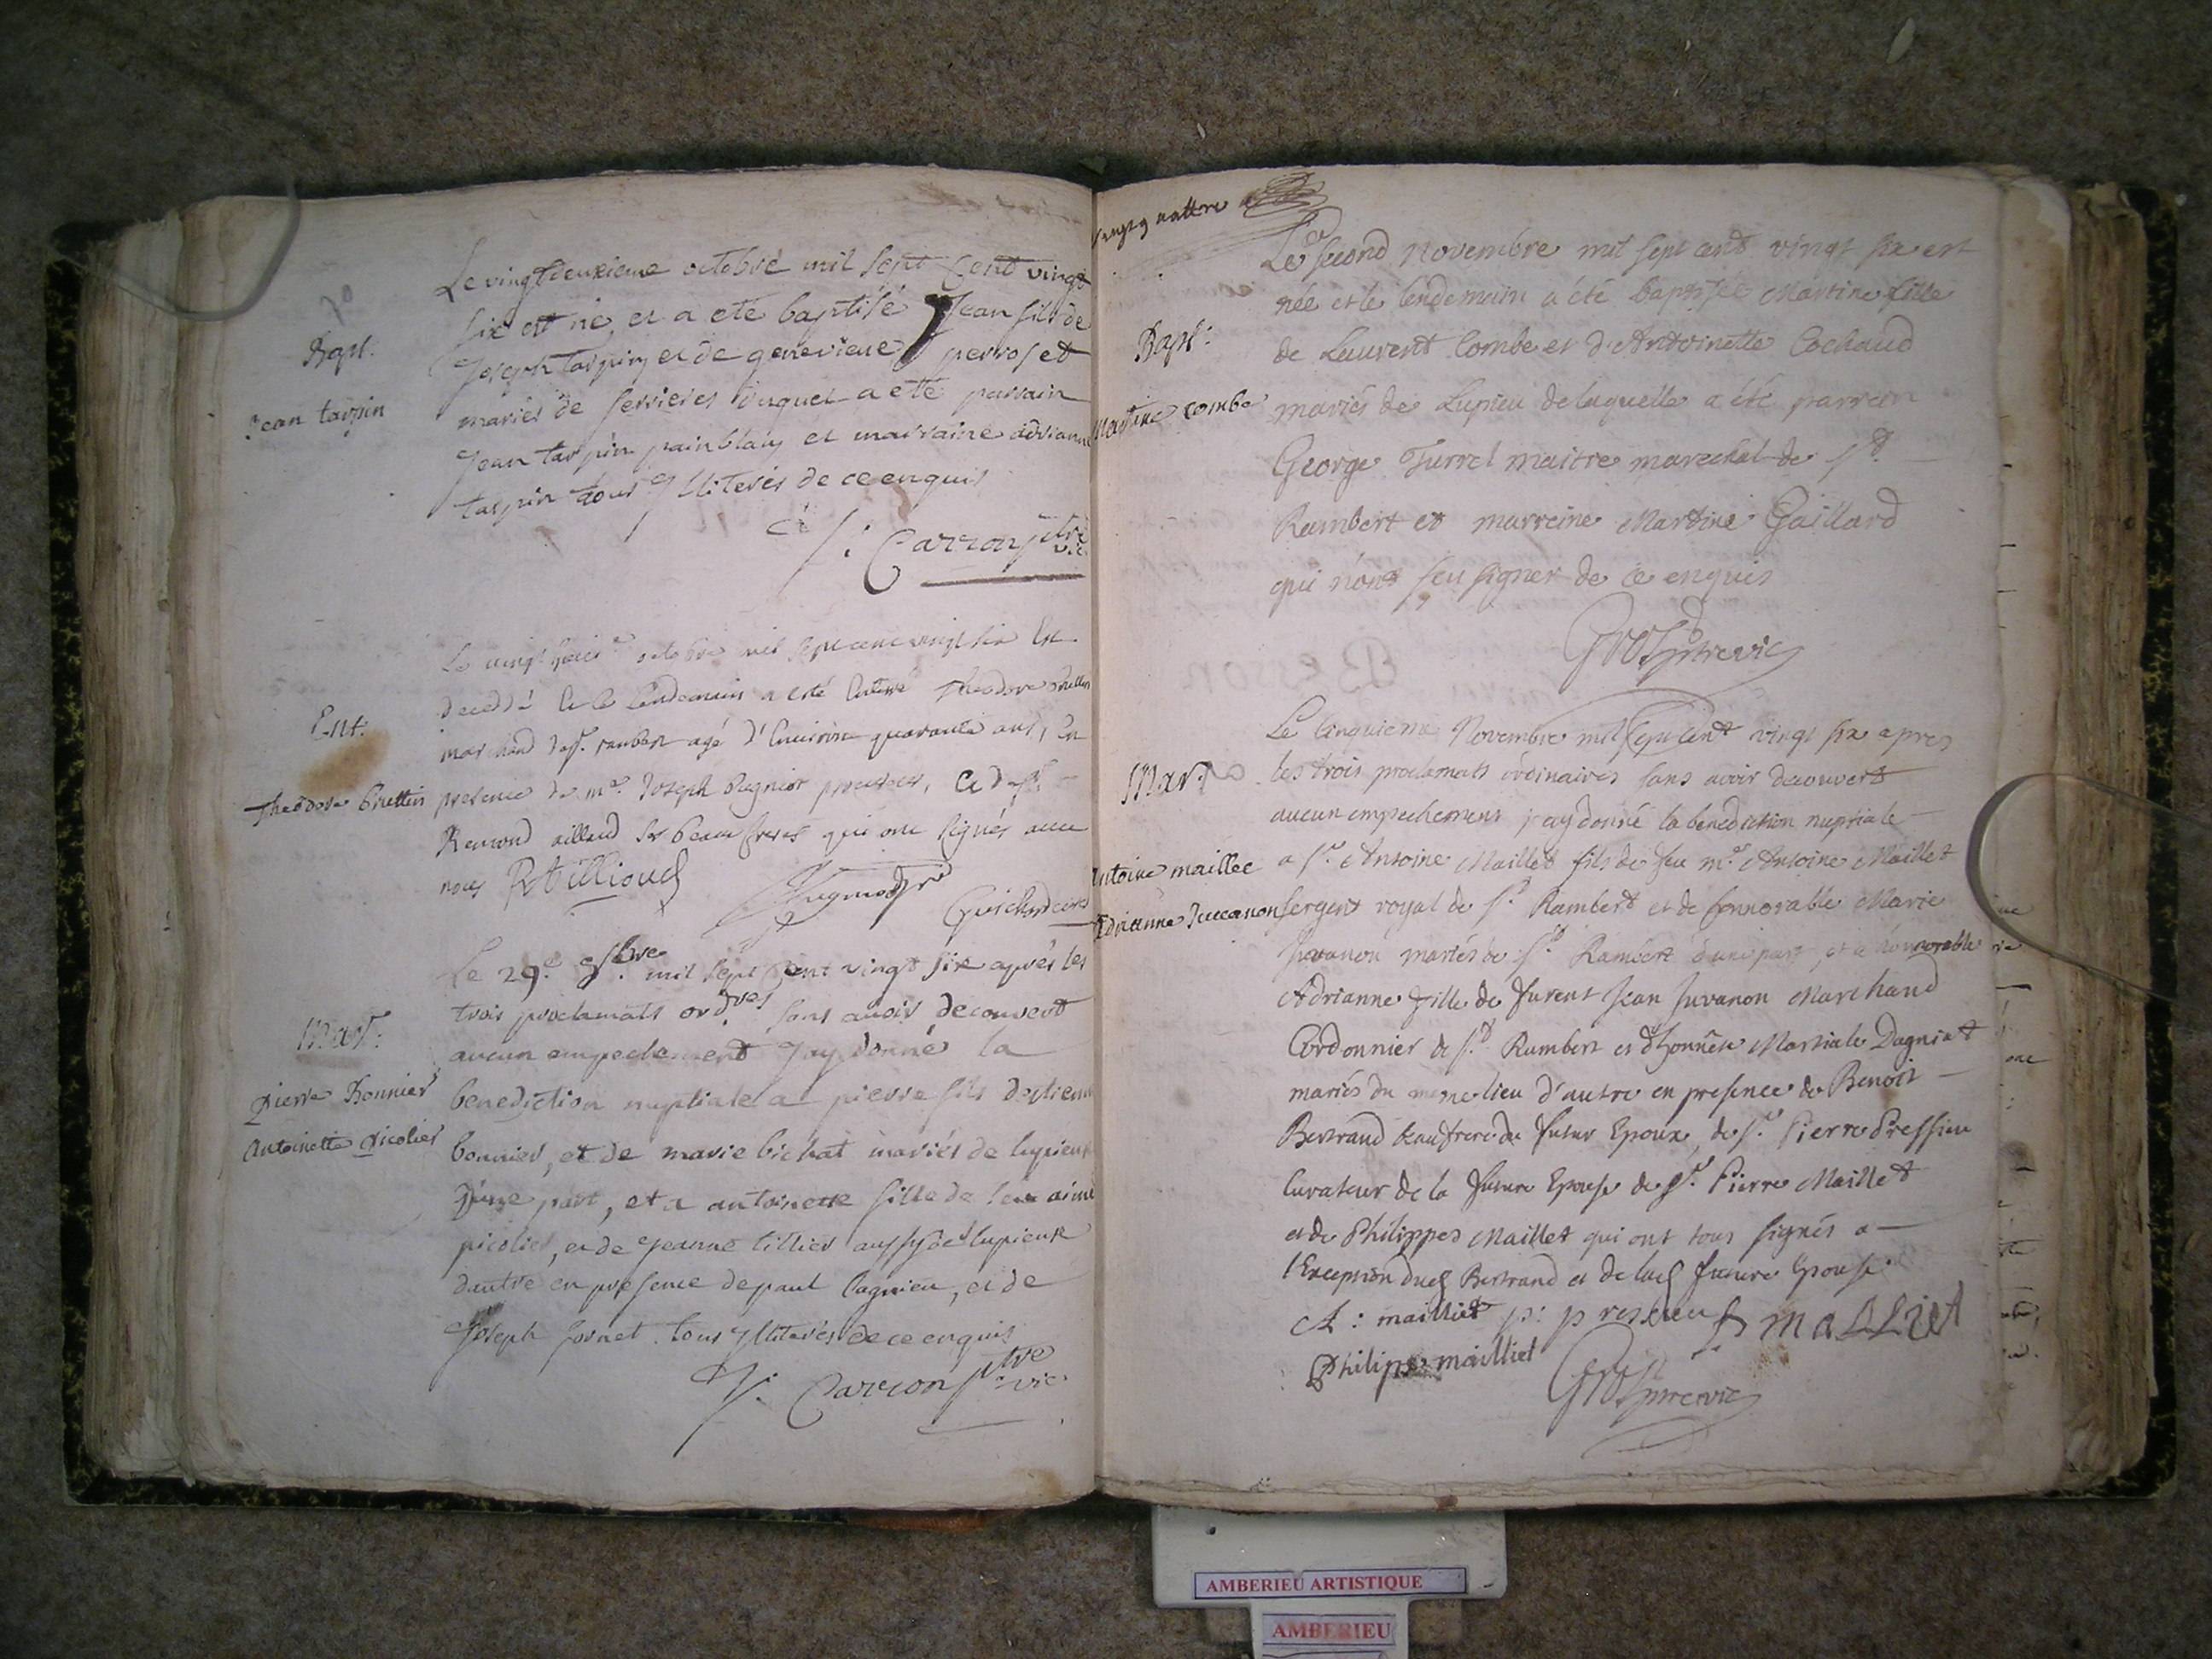 70
Bapt.
Jean tarpin
Le vingtdeuxieme octobre mil sept cent vingt
six est né, et a eté baptisé Jean fils de
Joseph tarpin et de genevieve perrozet
mariés de serrieres duquel a eté parrain
Jean tarpin painblanc et marraine adrianne
tarpin tous Illiterés de ce enquis
J: Carron ptre
vic
Ent:
Theodore
Le vingt octobre mil sept cent vingt six est
decedé et le lendemain a esté enterré Theodore
marchand de st. rambert agé d'environ quarante ans, en
presence de me. Joseph procureur, et de sr.
Remond aillaud ses beaux freres qui ont signés avec
nous
Le 29e. 8bre. mil sept cent vingt six après les
trois proclamats ordres sans avoir decouvert
aucun empechement J'ay donné la
Mar:
Pierre Bonnier
Antoinette Picolier
benediction nuptiale a pierre fils destienne
bonnier, et de marie bichat mariés de lupieux
d'une part, et a antoinette fille de feu aimé
picolier, et de jeanne tillier aussy de lupieux
dautre en presence de paul Cagnieu, et de
Joseph Jornet tous Illiterés de ce enquis
J: Carron ptre vic
vingt quattre
Bapt:
Martine combe
Le second Novembre mil sept cent vingt six est
née et le lendemain a été baptisée Martine fille
de Laurent Combe et d'Antoinette Cochaud
mariés de Lupieu de laquelle a été parrein
George Turrel maitre marechal de st.
Rambert et marreine Martine Gaillard
qui n'ont sçu signer de ce enquis
Gros ptre vic
Mar.
Antoine maillet
Adrianne Juvanon
Le Cinquieme Novembre mil sept cent vingt six apres
les trois proclamats ordinaires sans avoir decouvert
aucun empechement j'ay donné la benediction nuptiale
a sr. Antoine Maillet fils de feu me. Antoine Maillet
sergent royal de st. Rambert et de honnorable Marie
Juvanon mariés de st. Rambert d'une part, et a honnorable
Adrianne fille de Jean Juvanon Marchand
Cordonnier de st. Rambert et d'honnete Martiale Dagniat
mariés du meme lieu d'autre en presence de Benoit
Bertrand beaufrere du futur Epoux, de sr. Pierre Pressieu
Curateur de la future Epouse de sr. Pierre Maillet
et de Philippes Maillet qui ont tous signés a
l'Exception dud Bertrand et de lad future Epouse
A: mailliet p: pressieu malliet
Philipe mailliet
Gros ptre vic
AMBERIEU ARTISTIQUE
AMBERIEU